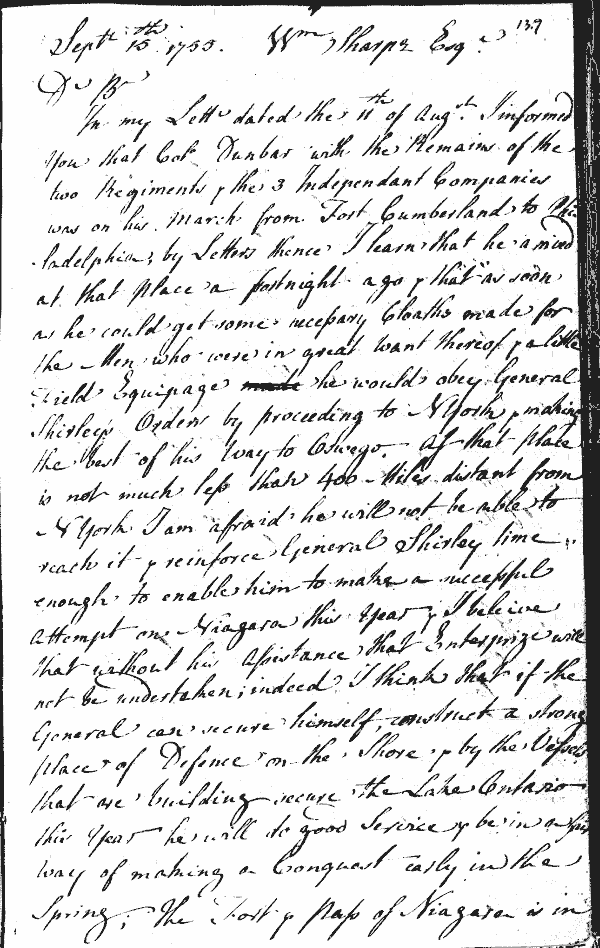 139
Septr 15th 1755. Wm Sharpe Esqr
Dr Br
In my Lettr dated the 11th of Augst I informed
You that Colo Dunbar with the Remains of the
two Regiments & the 3 Independant Companies
was on his March from Fort Cumberland to Phi
ladelphia; by Letters thence I learn that he arrived
at that place a fortnight ago & that as soon
as he could get some necessary Cloaths made for
the Men who were in great want thereof & a little
Field Equipage he would obey General
Shirleys Orders by proceeding to N York & making
the best of his Way to Oswego. As that place
is not much less than 400 Miles distant from
N York I am afraid he will not be able to
reach it & reinforce General Shirley time
enough to enable him to make a successful
attempt on Niagara this Year & I believe
that without his Assistance that Enterprize will
not be undertaken; indeed I think that if the
General can secure himself, construct a strong
place of Defence on the Shore, & by the Vessels
that are building secure the Lake Ontario
this Year he will do good Service & be in a fair
way of making a Conquest early in the
Spring; The Fort & Pass of Niagara is in